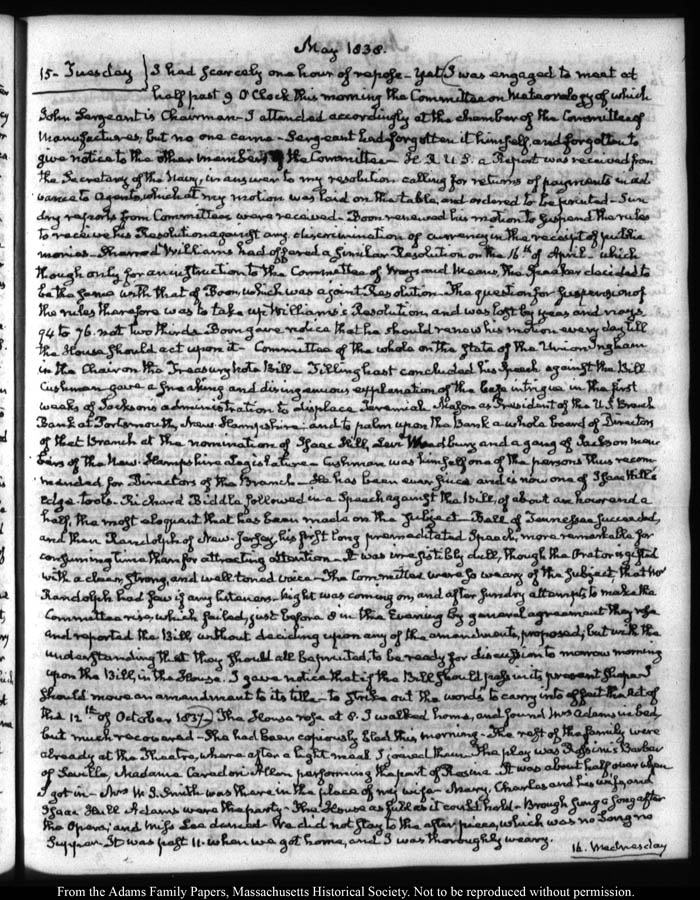 May 1838.
15. Tuesday } I had scarcely one hour of repose - Yet I was engaged to meet at
half past 9 O'Clock this morning the Committee on Meteorology of which
John Sergeant is Chairman - I attended accordingly at the chamber of the Committee of
Manufactures, but no one came - Sergeant had forgotten it himself, and forgotten to
give notice to the other members of the Committee - H. R. U. S. a Report was received from
the Secretary of the Navy, in answer to my resolution calling for returns of payments in ad-
vance to Agents, which at my motion was laid on the table, and ordered to be printed - Sun-
dry reports from Committees were received - Boon renewed his motion to suspend the rules
to receive his Resolution against any discrimination of currency in the receipt of public
monies - Sherrod Williams had offered a similar Resolution on the 16th of April - which
though only for an instruction to the Committee of Ways and Means, the Speaker decided to
be the same with that of Boon, which was a joint Resolution - The question for suspension of
the rules therefore was to take up Williams's Resolution, and was lost by yeas and nays
94 to 76. not two thirds - Boon gave notice that he should renew his motion every day till
the House should act upon it - Committee of the whole on the State of the Union Ingham
in the Chair on the Treasury Note Bill - Tillinghast concluded his Speech against the Bill
Cushman gave a sneaking and disingenuous explanation of the base intrigue in the first
weeks of Jackson's administration to displace Jeremiah Mason as President of the U.S. Branch
Bank at Portsmouth, New Hampshire; and to palm upon the Bank a whole board of Directors
of that Branch at the nomination of Isaac Hill, Levi Woodbury and a gang of Jackson mem-
bers of the New Hampshire Legislature - Cushman was himself one of the persons thus recom-
mended for Directors of the Branch - He has been ever since and is now one of Isaac Hill's
edge-tools. Richard Biddle followed in a Speech against the Bill, of about an hour and a
half, the most eloquent that has been made on the subject - Bell of Tennessee succeeded,
and then Randolph of New-Jersey, his first long premeditated Speech, more remarkable for
consuming time than for attracting attention - It was irresistibly dull, though the Orator is gifted
with a clear, strong, and well toned voice - The Committee were so weary of the subject, that
Randolph had few if any listeners - Night was coming on, and after sundry attempts to make the
Committee rise, which failed, just before 8 in the Evening by general agreement they rose
and reported the Bill, without deciding upon any of the amendments, proposed; but with the
understanding that they should all be printed, to be ready for discussion to morrow morning
upon the Bill, in the House. I gave notice that if the Bill should pass in its present shape I
should move an amendment to its title - to strike out the words to carry into effect the Act of
the 12th of October 1837 - The House rose at 8. I walked home, and found Mrs Adams in bed,
but much recovered - She had been copiously bled this morning - The rest of the family were
already at the Theatre, where after a light meal I joined them. The play was Rossini's Barber
of Seville, Madame Caradori Allan performing the part of Rosina - It was about half over when
I got in - Mrs W. S. Smith was there in the place of my wife - Mary, Charles and his wife, and
Isaac Hull Adams were the party - The House as full as it could hold - Brough sung a song after
the Opera; and Miss Lee danced - We did not stay to the after piece, which was no Song no
Supper - It was past 11. when we got home, and I was thoroughly weary.
16. Wednesday
From the Adams Family Papers, Massachusetts Historical Society. Not to be reproduced without permission.